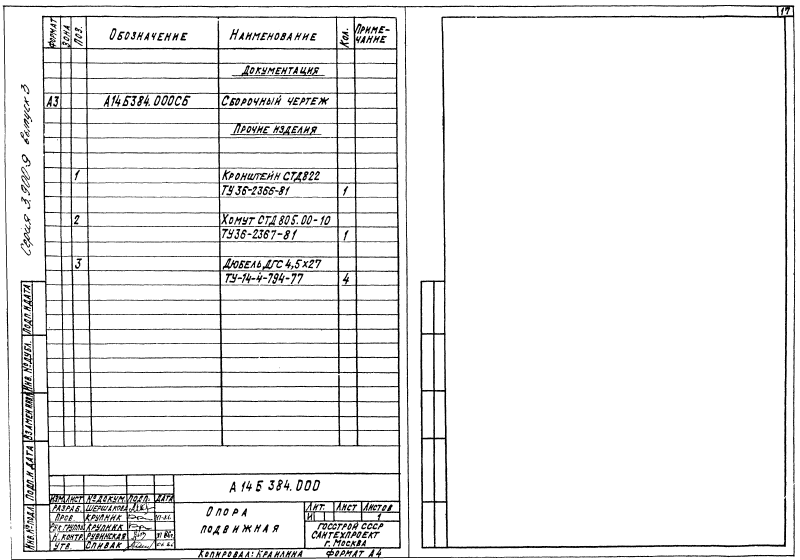 17
ФОРМАТ ЗОНА ПОЗ. ОБОЗНАЧЕНИЕ НАИМЕНОВАНИЕ КОЛ. ПРИМЕ-ЧАНИЕ
ДОКУМЕНТАЦИЯ
А3 А14Б384.000СБ СБОРОЧНЫЙ ЧЕРТЕЖ
ПРОЧИЕ ИЗДЕЛИЯ
1 КРОНШТЕЙН СТД822
ТУ36-2366-81 1
2 ХОМУТ СТД 805.00-10
ТУ36-2367-81 1
3 ДЮБЕЛЬ ДГС 4,5×27
ТУ-14-4-794-77 4
Серия 3.900-9 выпуск 3
ПОДП. И ДАТА
ИНВ. № ДУБЛ.
ВЗАМЕН ИНВ.
ПОДП. И ДАТА
ИНВ. № ПОДЛ.
А14Б 384.000
ИЗМ ЛИСТ № ДОКУМ. ПОДП. ДАТА
РАЗРАБ. ШЕРШАКОВА
ПРОВ. КРУПНИК
РУК. ГРУППЫ КРУПНИК
Н. КОНТР. РУВИНСКАЯ
УТВ. СПИВАК
ОПОРА
ПОДВИЖНАЯ
ЛИТ. ЛИСТ ЛИСТОВ
И 1
ГОССТРОЙ СССР
САНТЕХПРОЕКТ
Г. МОСКВА
КОПИРОВАЛ: КРАИЛИНА ФОРМАТ А4